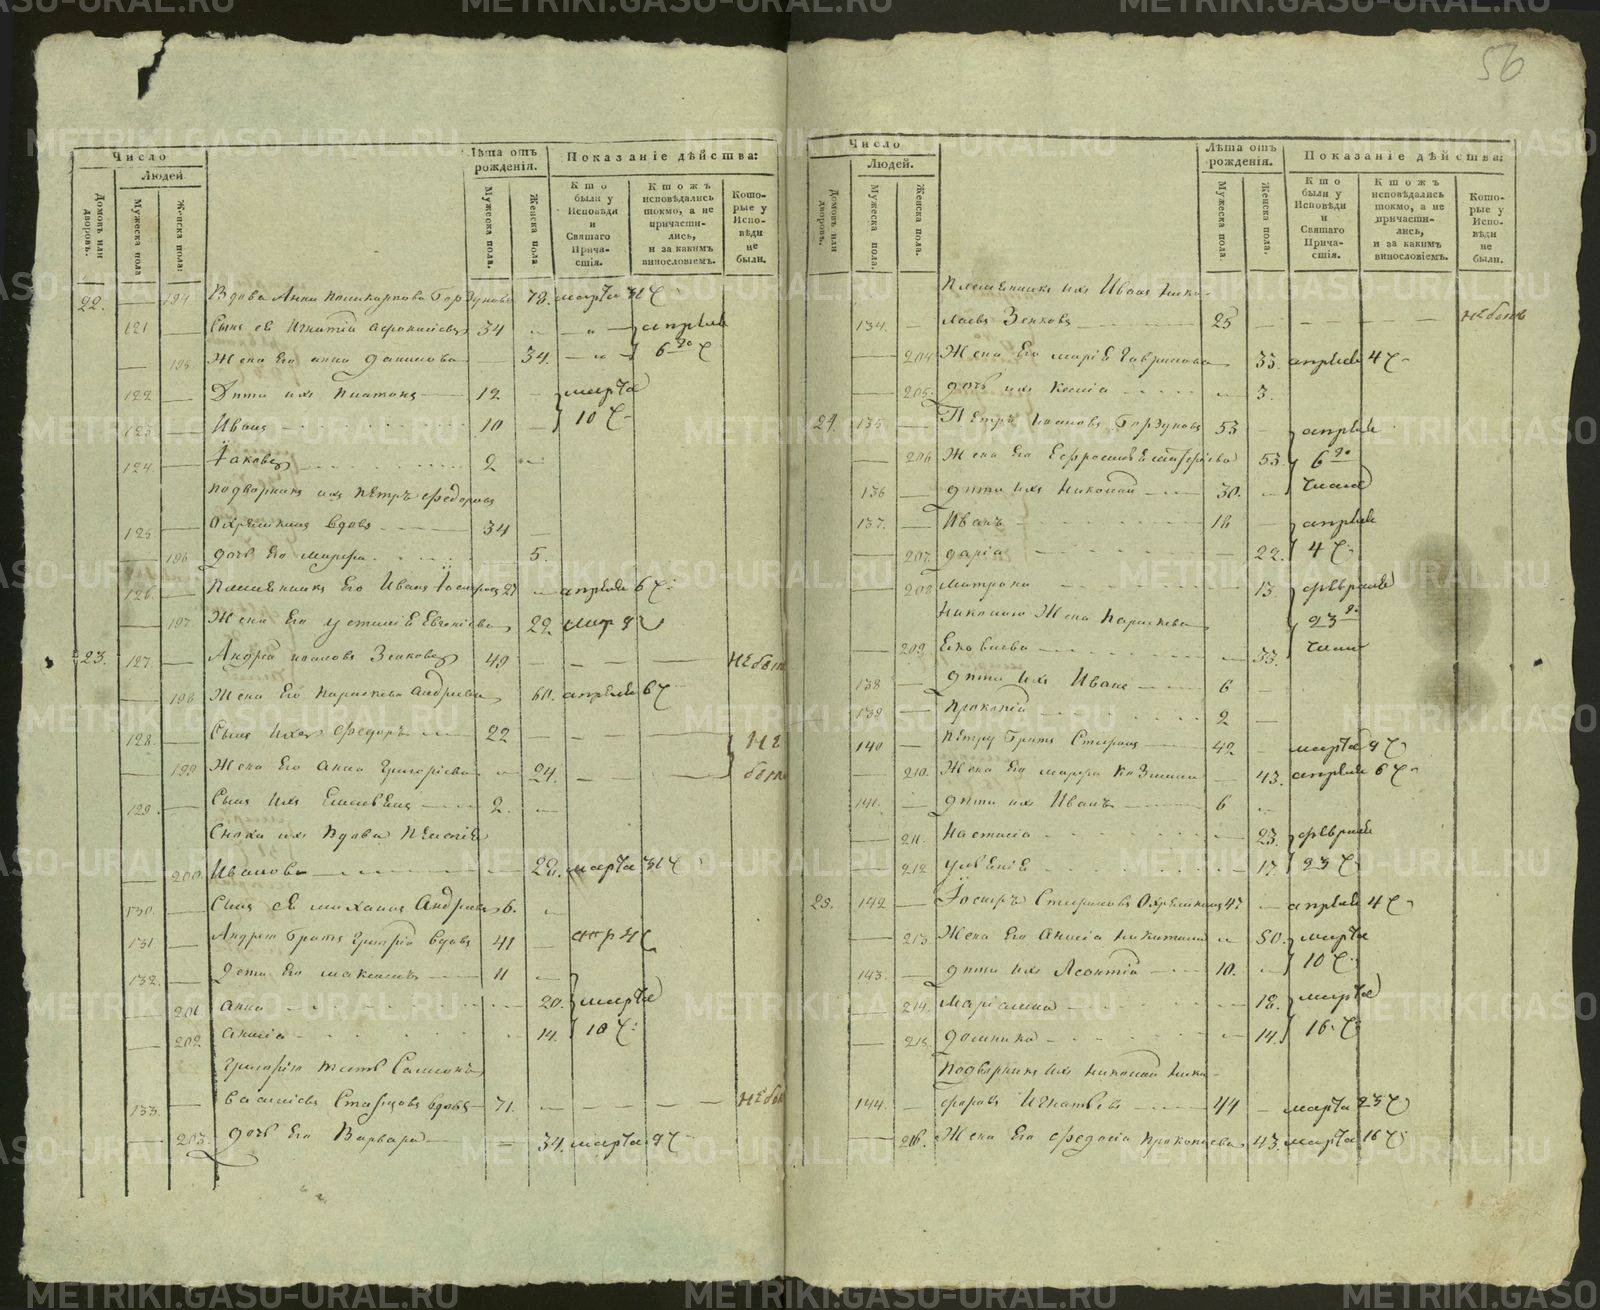 56
Число
Людей
Домовъ или дворовъ.
Мужеска пола
Женска пола:
Лѣта отъ рожденія.
Мужеска пола.
Женска пола.
Показаніе дѣйства:
Кто были у Исповѣди и Святаго Прича- стія.
Ктожъ исповѣдались токмо, а не причасти- лись, и за какимъ винословіемъ.
Кото- рые у Испо- вѣди не были.
22. — 194 Вдова Анна Поликарпова Горзунова 78. марта 31 ч
121 — Сынъ ев Игнатій Афонасіевъ 34 — апреля
— 195 Жена Его анна Данилова — 34. — 6го ч
122 — Дѣти ихъ Платонъ 12 — марта
123 — Иванъ 10 — 10 ч
124. — Іаковъ 2 —
подворникъ ихъ Пѣтръ Федоровъ
125 — вдовъ 34 —
— 196 дочь Его Марфа 5.
126 — Племянникъ Его Иванъ 27 — апреля 6 ч
— 197 Жена Его Устинія 22
23. 127. — Андрей Ивановъ Зенковъ 49 — — — не былъ
— 198 Жена Его Параскева Андреева 60. апреля 6 ч
128. — Сынъ ихъ Федоръ 22 — — — не
— 199 Жена Его Анна Григоріева — 24. — — были
129. — Сынъ ихъ 2. —
Сноха ихъ Вдова Пелагія
— 200 Иванова 28. марта 31 ч
130. — Сынъ ев Михаилъ Андреевъ 6. —
131 — Андрею братъ Григорій вдовъ 41 — апр 4 ч
132. — Дети Его Максимъ 11 —
— 201 Анна — 20. марта
— 202 Анисія — 14. 10 ч
Григорію тесть Самсонъ
133. — Василіевъ вдовъ 71. — — — не былъ
— 203. дочь Его Варвара — 34. марта 9 ч
Число
Людей.
Домовъ или дворовъ.
Мужеска пола.
Женска пола.
Лѣта отъ рожденія.
Мужеска пола.
Женска пола.
Показаніе дѣйства:
Кто были у Исповѣди и Святаго Прича- стія.
Ктожъ исповѣдались токмо, а не причасти- лись, и за какимъ винословіемъ.
Кото- рые у Испо- вѣди не были.
Племянникъ ихъ Иванъ Нико-
134. — лаевъ Зенковъ 25 — — — не былъ
— 204 Жена Его Марія Гаврилова 33. апреля 4 ч
— 205. дочь ихъ Ксенія — 3.
24. 135. — Пѣтръ Ивановъ Горзуновъ 53 — апреля
— 206 Жена Его Ефросинія 53. 6го
136 — дѣти ихъ Николай 30. — числа
137. — Иванъ 18 — апреля
— 207 дарія — 22. 4 ч
— 208 Матрона — 13. февраля
Николаю Жена Параскева 23го
— 209. — 33. числа
138 — дѣти ихъ Иванъ 6 —
139 — Прокопій 2 —
140 — Пѣтру братъ Спиридонъ 42 — марта 9 ч
— 210. Жена Его Марфа 43. апреля 6 ч
141. — дѣти ихъ Иванъ 6 —
— 211. Настасія — 23. февраля
— 212 Уліянія — 17. 23 ч
25. 142 — 47 — апреля 4 ч
— 213. Жена Его Анисія Никитина — 50. марта
143. — дѣти ихъ Леонтій 10. — 10 ч
— 214. Маріамна — 18. марта
— 215. домника — 14. 16 ч
Подворникъ ихъ Николай Ники-
144. — форовъ Игнатьевъ 44 — марта 23 ч
— 216. Жена Его Федосія Прокопьева 43. марта 16 ч
METRIKI.GASO-URAL.RU